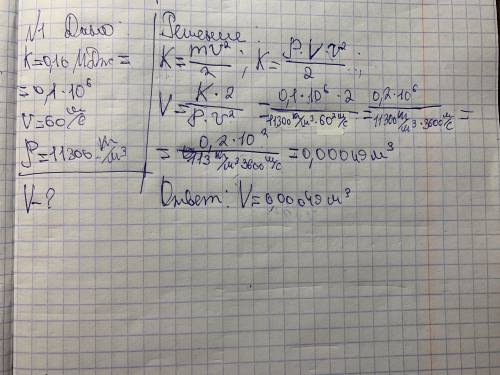 №1 Дано:
K=0,1 МДж=
=0,1·10⁶
v=60 м/с
ρ=11300 кг/м³
V-?
Решение:
K=mv²/2; K=ρ·V·v²/2;
V=K·2/ρ·v²=0,1·10⁶·2/11300 кг/м³·60² м/с=0,2·10⁶/11300 кг/м³·3600 м/с=
=0,2·10³/113 кг/м³ 3600 м/с=0,00049 м³
Ответ: V=0,00049 м³